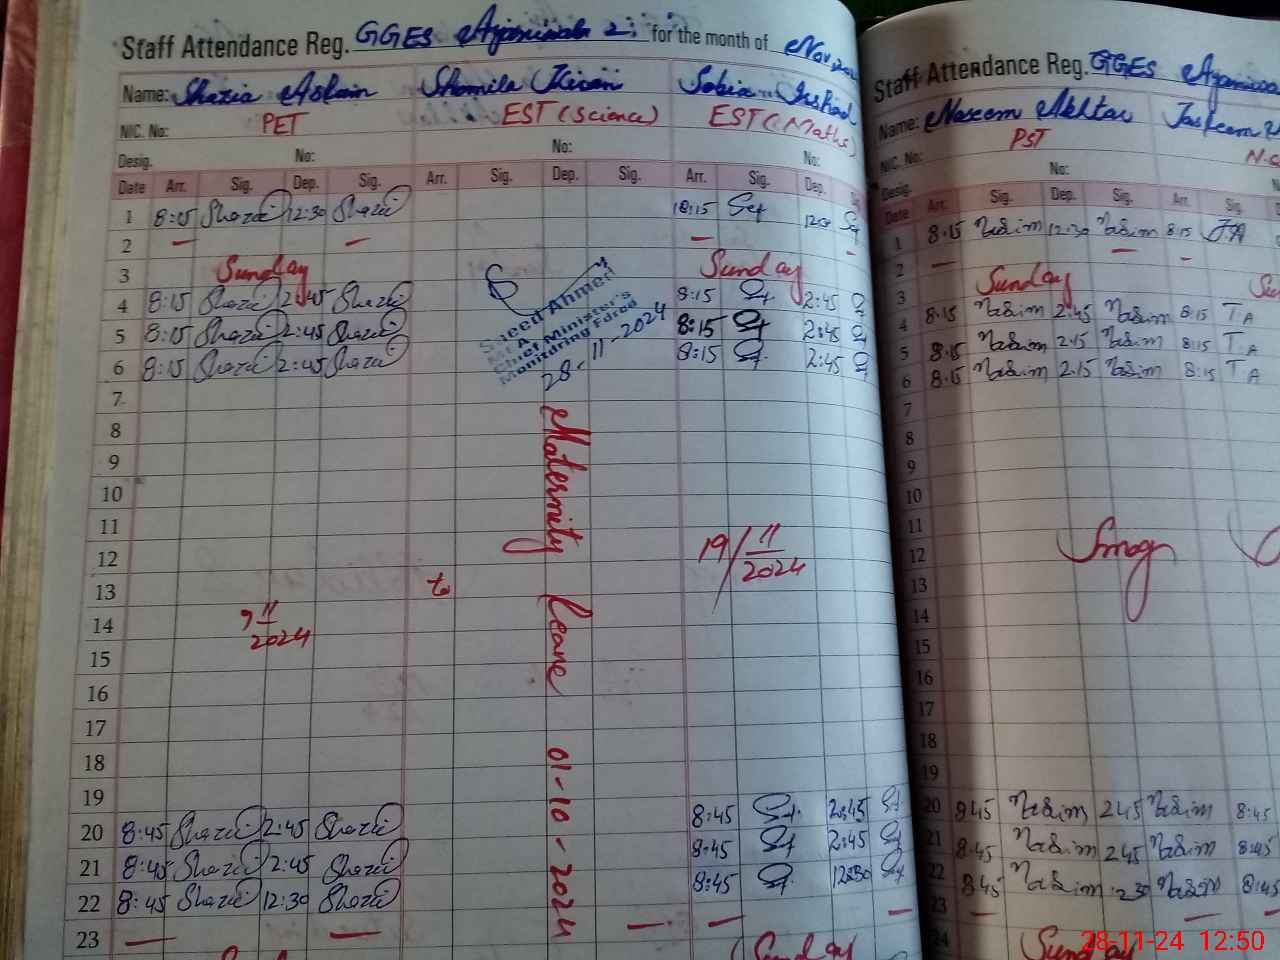 Staff Attendance Reg. GGES for the month of Nov, 202
Name: Shazia Aslam Shomila Kiran Sobia Irshad
NIC. No: PET EST (Science) EST (Maths)
Desig. No: No: No:
Date Arr. Sig. Dep. Sig. Arr. Sig. Dep. Sig. Arr. Sig. Dep.
1 8:15 Shazia 12:30 Shazia 12:30
2 — — — —
3 Sunday Sunday
4 8:15 Shazia 2:45 Shazia 8:15 2:45
5 8:15 Shazia 2:45 Shazia 8:15 2:45
6 8:15 Shazia 2:45 Shazia 8:15 2:45
Saeed Ahmed
MEA
Chief Minister's
Monitoring Force
28-11-2024
7
8
9
10
11
12
13
14
15
16
17
18
19
Maternity leave 01-10-2024
9 11/2024
to
19/11/2024
20 8:45 Shazia 2:45 Shazia 8:45 2:45
21 8:45 Shazia 2:45 Shazia 8:45 2:45
22 8:45 Shazia 12:30 Shazia 8:45 12:30
23 — — — — —
Sunday
Staff Attendance Reg. GGES
Name: Naseem Akhtar
NIC. No: PST
Desig. No:
Date Arr. Sig. Dep. Sig. Arr. Sig.
1 8:15 Nasim 12:30 Nasim 8:15
2 — — —
3 Sunday Su
4 8:15 Nasim 2:45 Nasim 8:15 TA
5 8:15 Nasim 2:15 Nasim 8:15 TA
6 8:15 Nasim 2:15 Nasim 8:15 TA
7
8
9
10
11
12
13
14
15
16
17
18
19
Smog
20 8:45 Nasim 2:45 Nasim 8:45
21 8:45 Nasim 2:45 Nasim 8:45
22 8:45 Nasim Nasim 8:45
23 — — —
24 Sunday
28-11-24 12:50